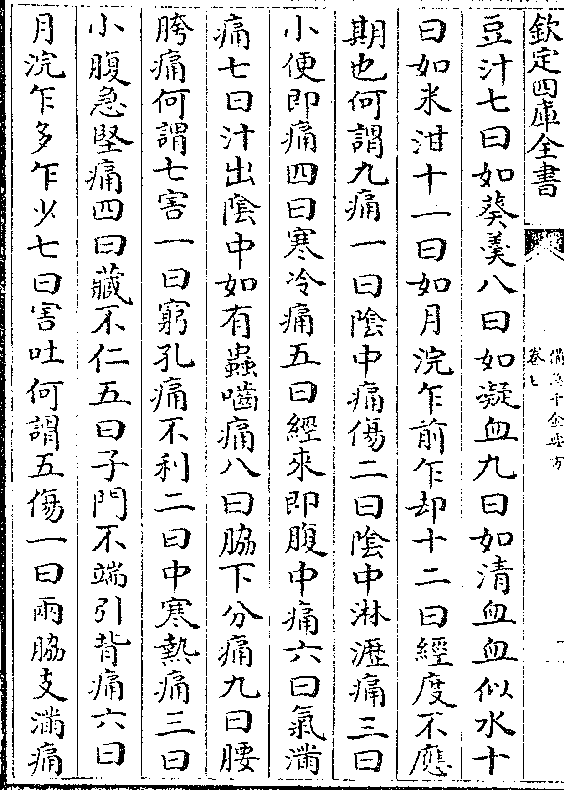 欽定四庫全書
備急千金要方
卷七
豆汁七曰如葵羮八曰如凝血九曰如清血血似水十
曰如米泔十一曰如月浣乍前乍却十二曰經度不應
期也何謂九痛一曰陰中痛傷二曰陰中淋瀝痛三曰
小便即痛四曰寒冷痛五曰經來即腹中痛六曰氣滿
痛七曰汁出陰中如有蟲嚙痛八曰脇下分痛九曰腰
胯痛何謂七害一曰窮孔痛不利二曰中寒熱痛三曰
小腹急堅痛四曰藏不仁五曰子門不端引背痛六曰
月浣乍多乍少七曰害吐何謂五傷一曰兩脇支滿痛